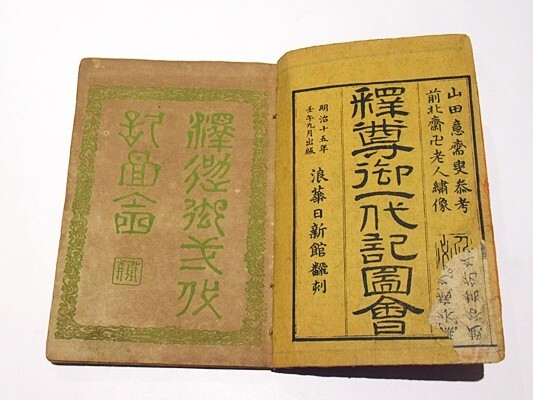 山田意齋叟叅考
前北齋卍老人繡像
釋尊御一代記圖會
明治十五年
壬午九月出版
浪華日新館飜刻
釋迦御一代
記圖會